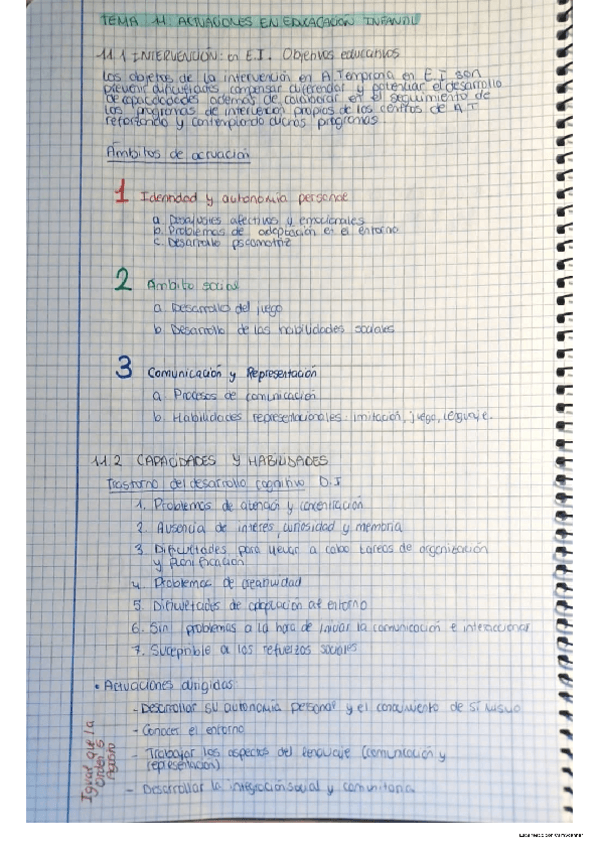 TEMA 11: ACTUACIONES EN EDUCACIÓN INFANTIL
11.1 INTERVENCIÓN: en E.I. Objetivos educativos
Los objetos de la intervención en A.Temprana en E.I son
prevenir dificultades, compensar diferencias y potenciar el desarrollo
de capacidades además de colaborar en el seguimiento de
los programas de intervención propios de los centros de A.T
reforzando y contemplando dichos programas
Ámbitos de actuación
1 Identidad y autonomía personal
a. Desajustes afectivos y emocionales
b. Problemas de adaptación en el entorno
c. Desarrollo psicomotriz
2 Ámbito social
a. Desarrollo del juego
b. Desarrollo de las habilidades sociales
3 Comunicación y Representación
a. Procesos de comunicación
b. Habilidades representacionales: imitación, juego, lenguaje.
11.2 CAPACIDADES Y HABILIDADES
Trastorno del desarrollo cognitivo D.I
1. Problemas de atención y concentración
2. Ausencia de interés, curiosidad y memoria
3. Dificultades para llevar a cabo tareas de organización
y planificación
4. Problemas de creatividad
5. Dificultades de adaptación al entorno
6. Sin problemas a la hora de iniciar la comunicación e interaccionar
7. Suceptible a los refuerzos sociales
• Actuaciones dirigidas:
- Desarrollar su autonomía personal y el conocimiento de sí mismo
- Conocer el entorno
- Trabajar los aspectos del lenguaje (comunicación y
representación)
- Desarrollar la integración social y comunitaria
Igual que la
Orden 5
Agosto